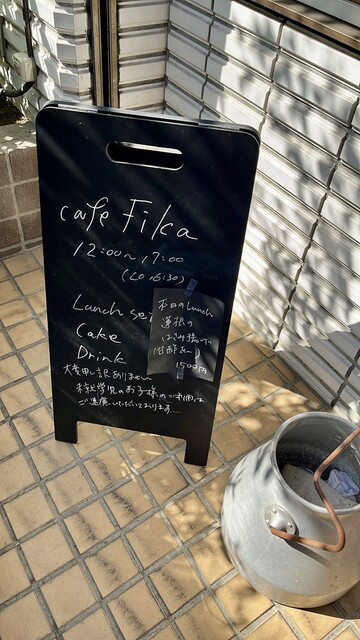 cafe Fika
12:00〜17:00
(LO 16:30)
Lunch set
Cake
Drink
本日のLunch
蓮根の
はさみ揚げ
(甘酢あん)
1500円
大変申し訳ありません
未就学児のお子様のご利用は
ご遠慮いただいております…